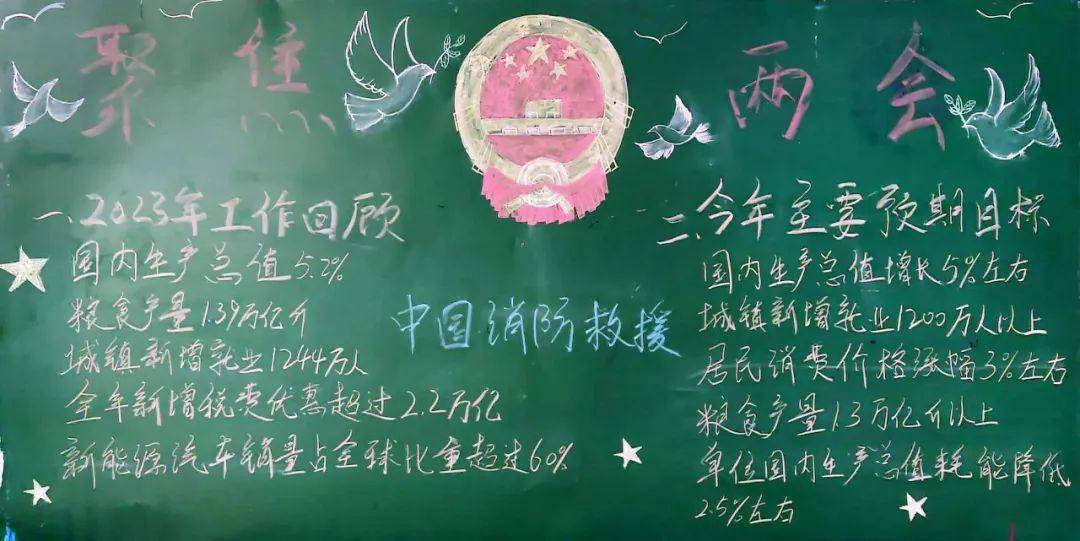 聚焦两会
一、2023年工作回顾
国内生产总值5.2%
粮食产量1.39万亿斤
城镇新增就业1244万人
全年新增税费优惠超过2.2万亿
新能源汽车销量占全球比重超过60%
中国消防救援
二、今年主要预期目标
国内生产总值增长5%左右
城镇新增就业1200万人以上
居民消费价格涨幅3%左右
粮食产量1.3万亿斤以上
单位国内生产总值耗能降低
2.5%左右